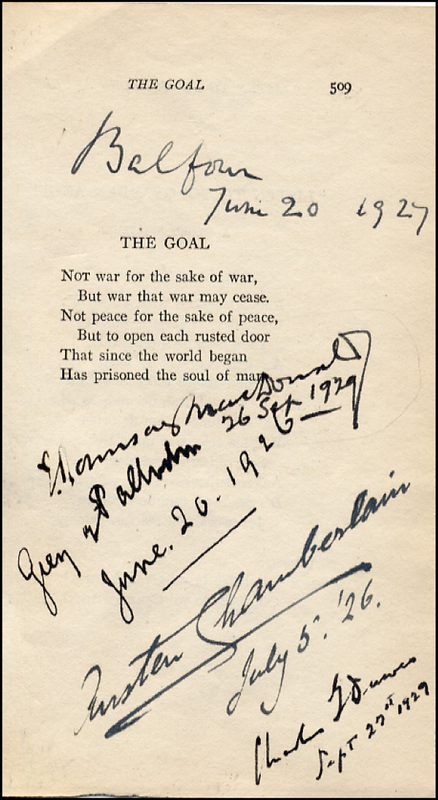 THE GOAL 509
Balfour
June 20 1927
THE GOAL
NOT war for the sake of war,
But war that war may cease.
Not peace for the sake of peace,
But to open each rusted door
That since the world began
Has prisoned the soul of man
J Ramsay MacDonald
26 Sep 1929
Grey
June. 20. 1926
Austen Chamberlain
July 5. '26.
Charles G Dawes
Sept 27th 1929